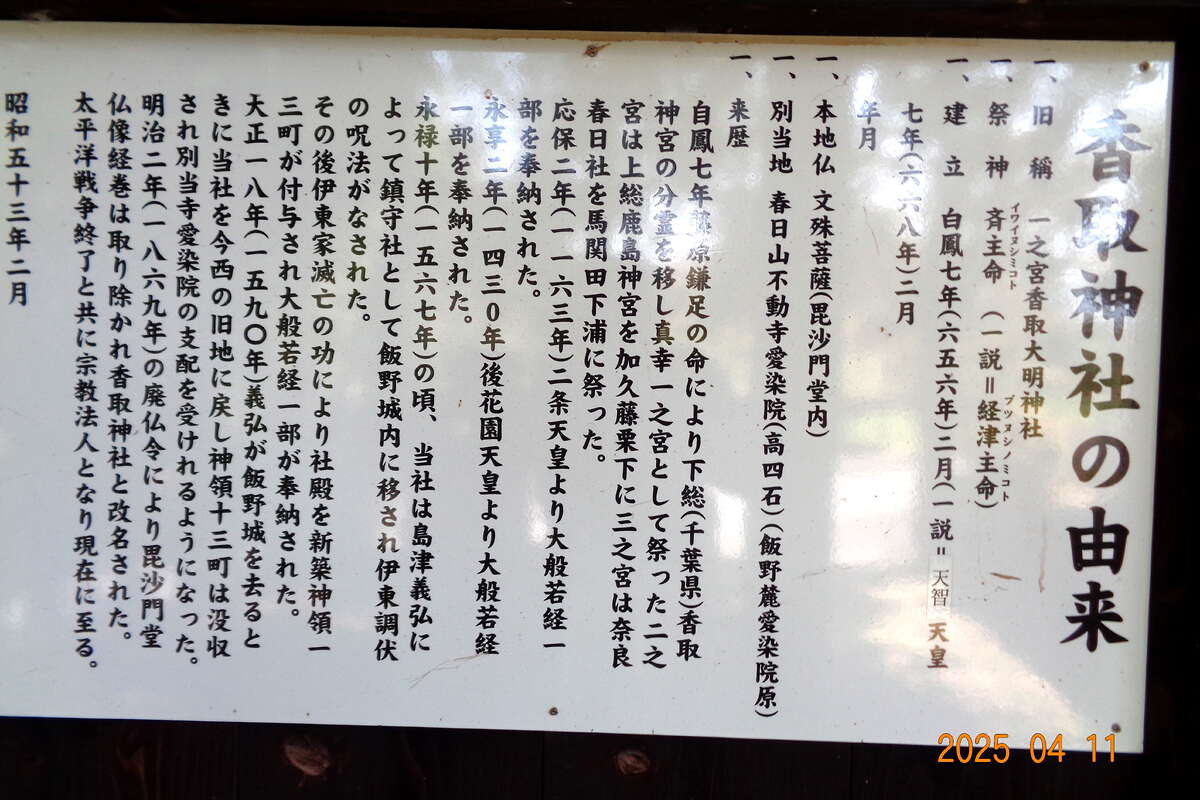 香取神社の由来
一、旧　稱　一之宮香取大明神社
一、祭　神　斉主命　(一説=経津主命)
イワイヌシミコト
フツヌシノミコト
一、建　立　白鳳七年(六五六年)二月(一説=天智天皇
七年(六六八年)二月
年月
一、本地仏　文殊菩薩(毘沙門堂内)
一、別当地　春日山不動寺愛染院(高四石)(飯野麓愛染院原)
一、来歴
自鳳七年藤原鎌足の命により下総(千葉県)香取
神宮の分霊を移し真幸一之宮として祭った二之
宮は上総鹿島神宮を加久藤栗下に三之宮は奈良
春日社を馬関田下浦に祭った。
応保二年(一一六三年)二条天皇より大般若経一
部を奉納された。
永享二年(一四三0年)後花園天皇より大般若経
一部を奉納された。
永禄十年(一五六七年)の頃、当社は島津義弘に
よって鎮守社として飯野城内に移され伊東調伏
の呪法がなされた。
その後伊東家滅亡の功により社殿を新築神領一
三町が付与され大般若経一部が奉納された。
大正一八年(一五九〇年)義弘が飯野城を去ると
きに当社を今西の旧地に戻し神領十三町は没収
され別当寺愛染院の支配を受けれるようになった。
明治二年(一八六九年)の廃仏令により毘沙門堂
仏像経巻は取り除かれ香取神社と改名された。
太平洋戦争終了と共に宗教法人となり現在に至る。
昭和五十三年二月
2025 04 11